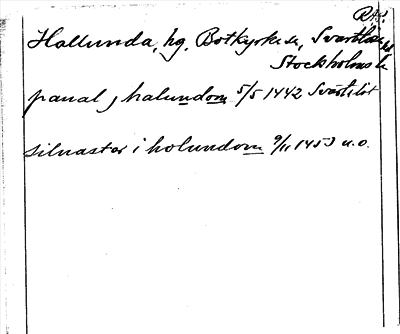 Hallunda, hg, Botkyrka sn, Svartlösa hd
Stockholms l.
panal j halundom 5/5 1442 Svartelöt
silnastar i holundom 9/11 1453 u.o.